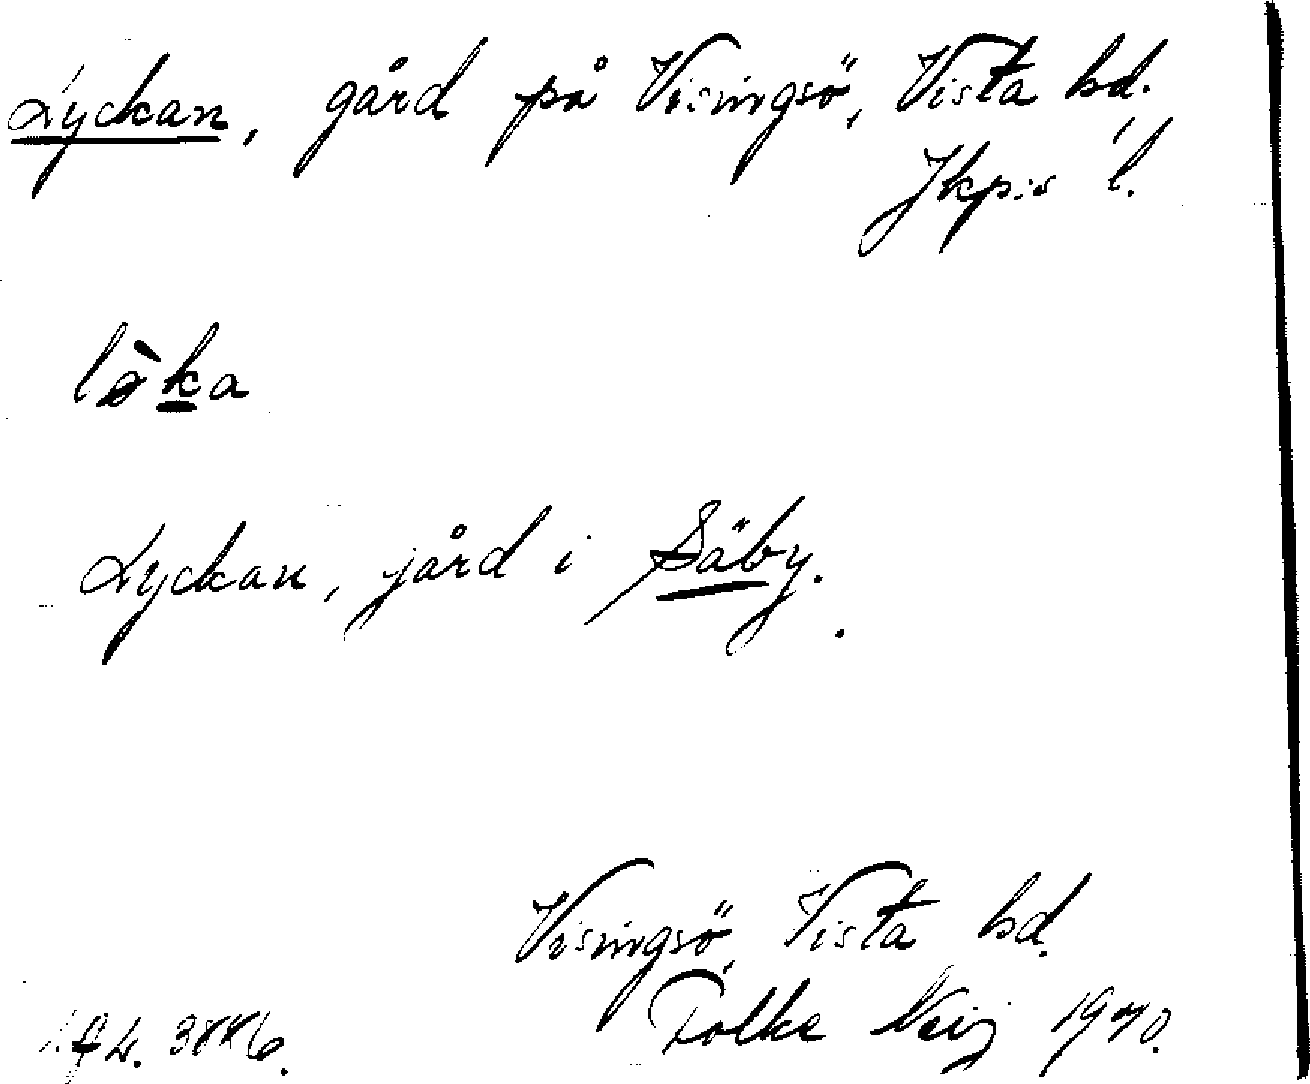 Lyckan, gård på Visingsö, Vista hd.
Jkp:s l.
Lyckan, gård i Säby.
Visingsö, Vista hd.
Folke Neij